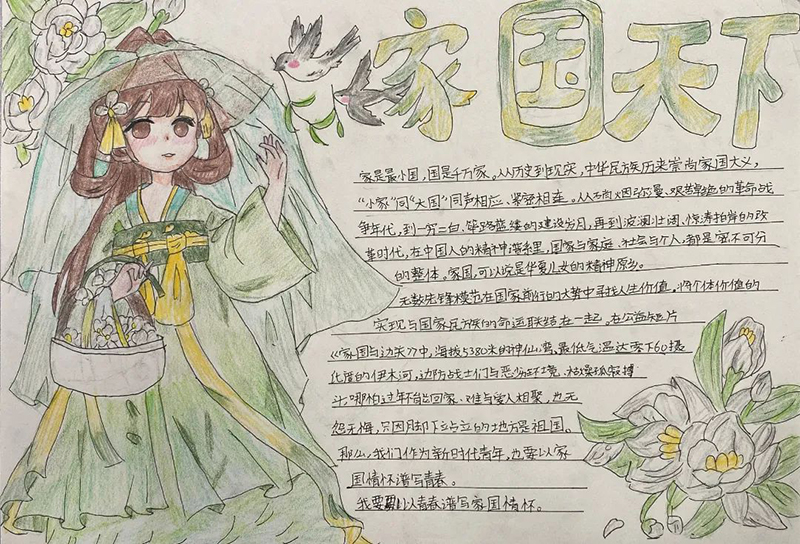 家国天下
家是最小国，国是千万家。从历史到现实，中华民族历来崇尚家国大义，
“小家”同“大国”同声相应、紧密相连。从硝烟弥漫、艰苦卓绝的革命战
争年代，到一穷二白、筚路蓝缕的建设岁月，再到波澜壮阔、惊涛拍岸的改
革时代，在中国人的精神谱系里，国家与家庭、社会与个人，都是密不可分
的整体。家国，可以说是华夏儿女的精神原乡。
无数先锋模范在国家前行的大势中寻找人生价值，将个体价值的
实现与国家民族的命运联结在一起。在公益短片
《家国与边关》中，海拔5380米的神仙湾，最低气温达零下60摄
氏度的伊木河，边防战士们与恶劣环境、枯燥孤寂搏
斗，哪怕过年不能回家、难与爱人相聚，也无
怨无悔，只因脚下站立的地方是祖国。
那么，我们作为新时代青年，也要以家
国情怀谱写青春。
我要以青春谱写家国情怀。